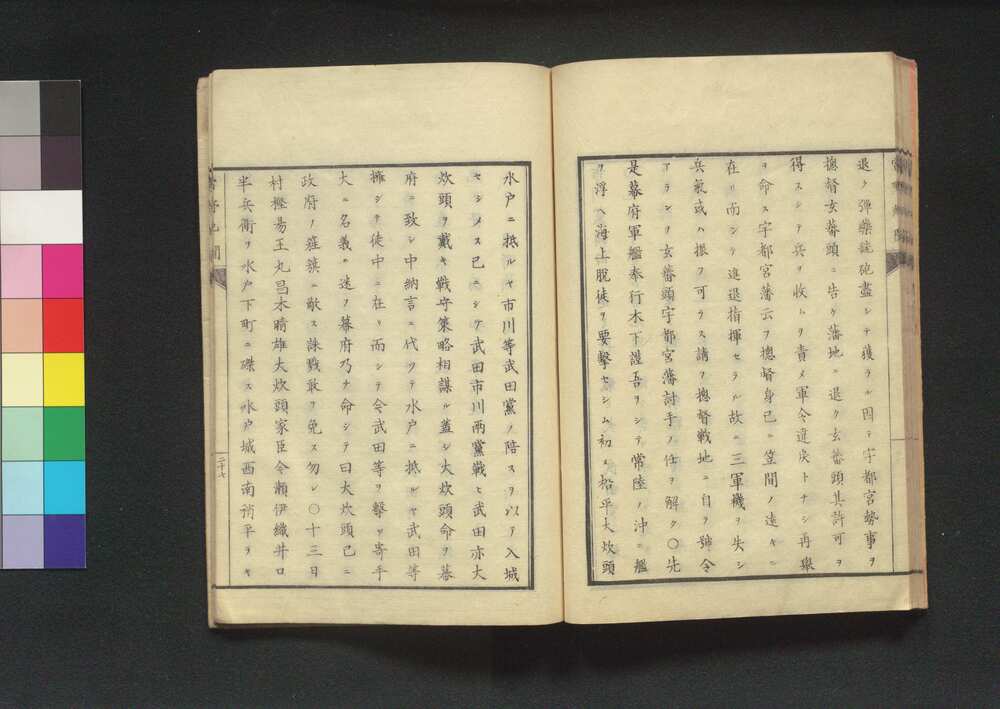 退ク彈藥銃砲盡シテ獲ラル因テ宇都宮勢事ヲ
摠督玄蕃頭ニ告ケ藩地ニ退ク玄蕃頭其許可ヲ
得スシテ兵ヲ收ムヲ責メ軍令違戻トナシ再擧
ヲ命ス宇都宮藩云ヲ摠督身已ニ笠間ノ遠キニ
在リ而シテ進退指揮セラル故ニ三軍機ヲ失シ
兵氣或ハ振フ可ラス請フ摠督戦地ニ自ラ號令
アランヲ玄蕃頭宇都宮藩討手ノ任ヲ解ク〇先
是幕府軍艦奉行木下謹吾ヲシテ常陸ノ沖ニ艦
ヲ浮ヘ海上脱徒ヲ要擊セシム初メ松平大炊頭
水戸ニ抵ルヤ市川等武田黨ノ陪スヲ以テ入城
セシメス已ニシテ武田市川兩黨戰ヒ武田亦大
炊頭ヲ戴キ戰守策略相謀ル蓋シ大炊頭命ヲ幕
府ニ致シ中納言ニ代ツテ水戸ニ抵ルヤ武田等
擁シテ徒中ニ在リ而シテ令武田等ヲ擊ツ寄手
大ニ名義ニ迷フ幕府乃チ命シテ曰大炊頭已ニ
政府ノ旌籏ニ敵ス誅戮敢テ免ス勿レ〇十三日
村樫易王丸昌木晴雄大炊頭家臣令瀬伊織井口
半兵衞ヲ水戸下町ニ磔ス水戸城西南稍平ラキ
二十七